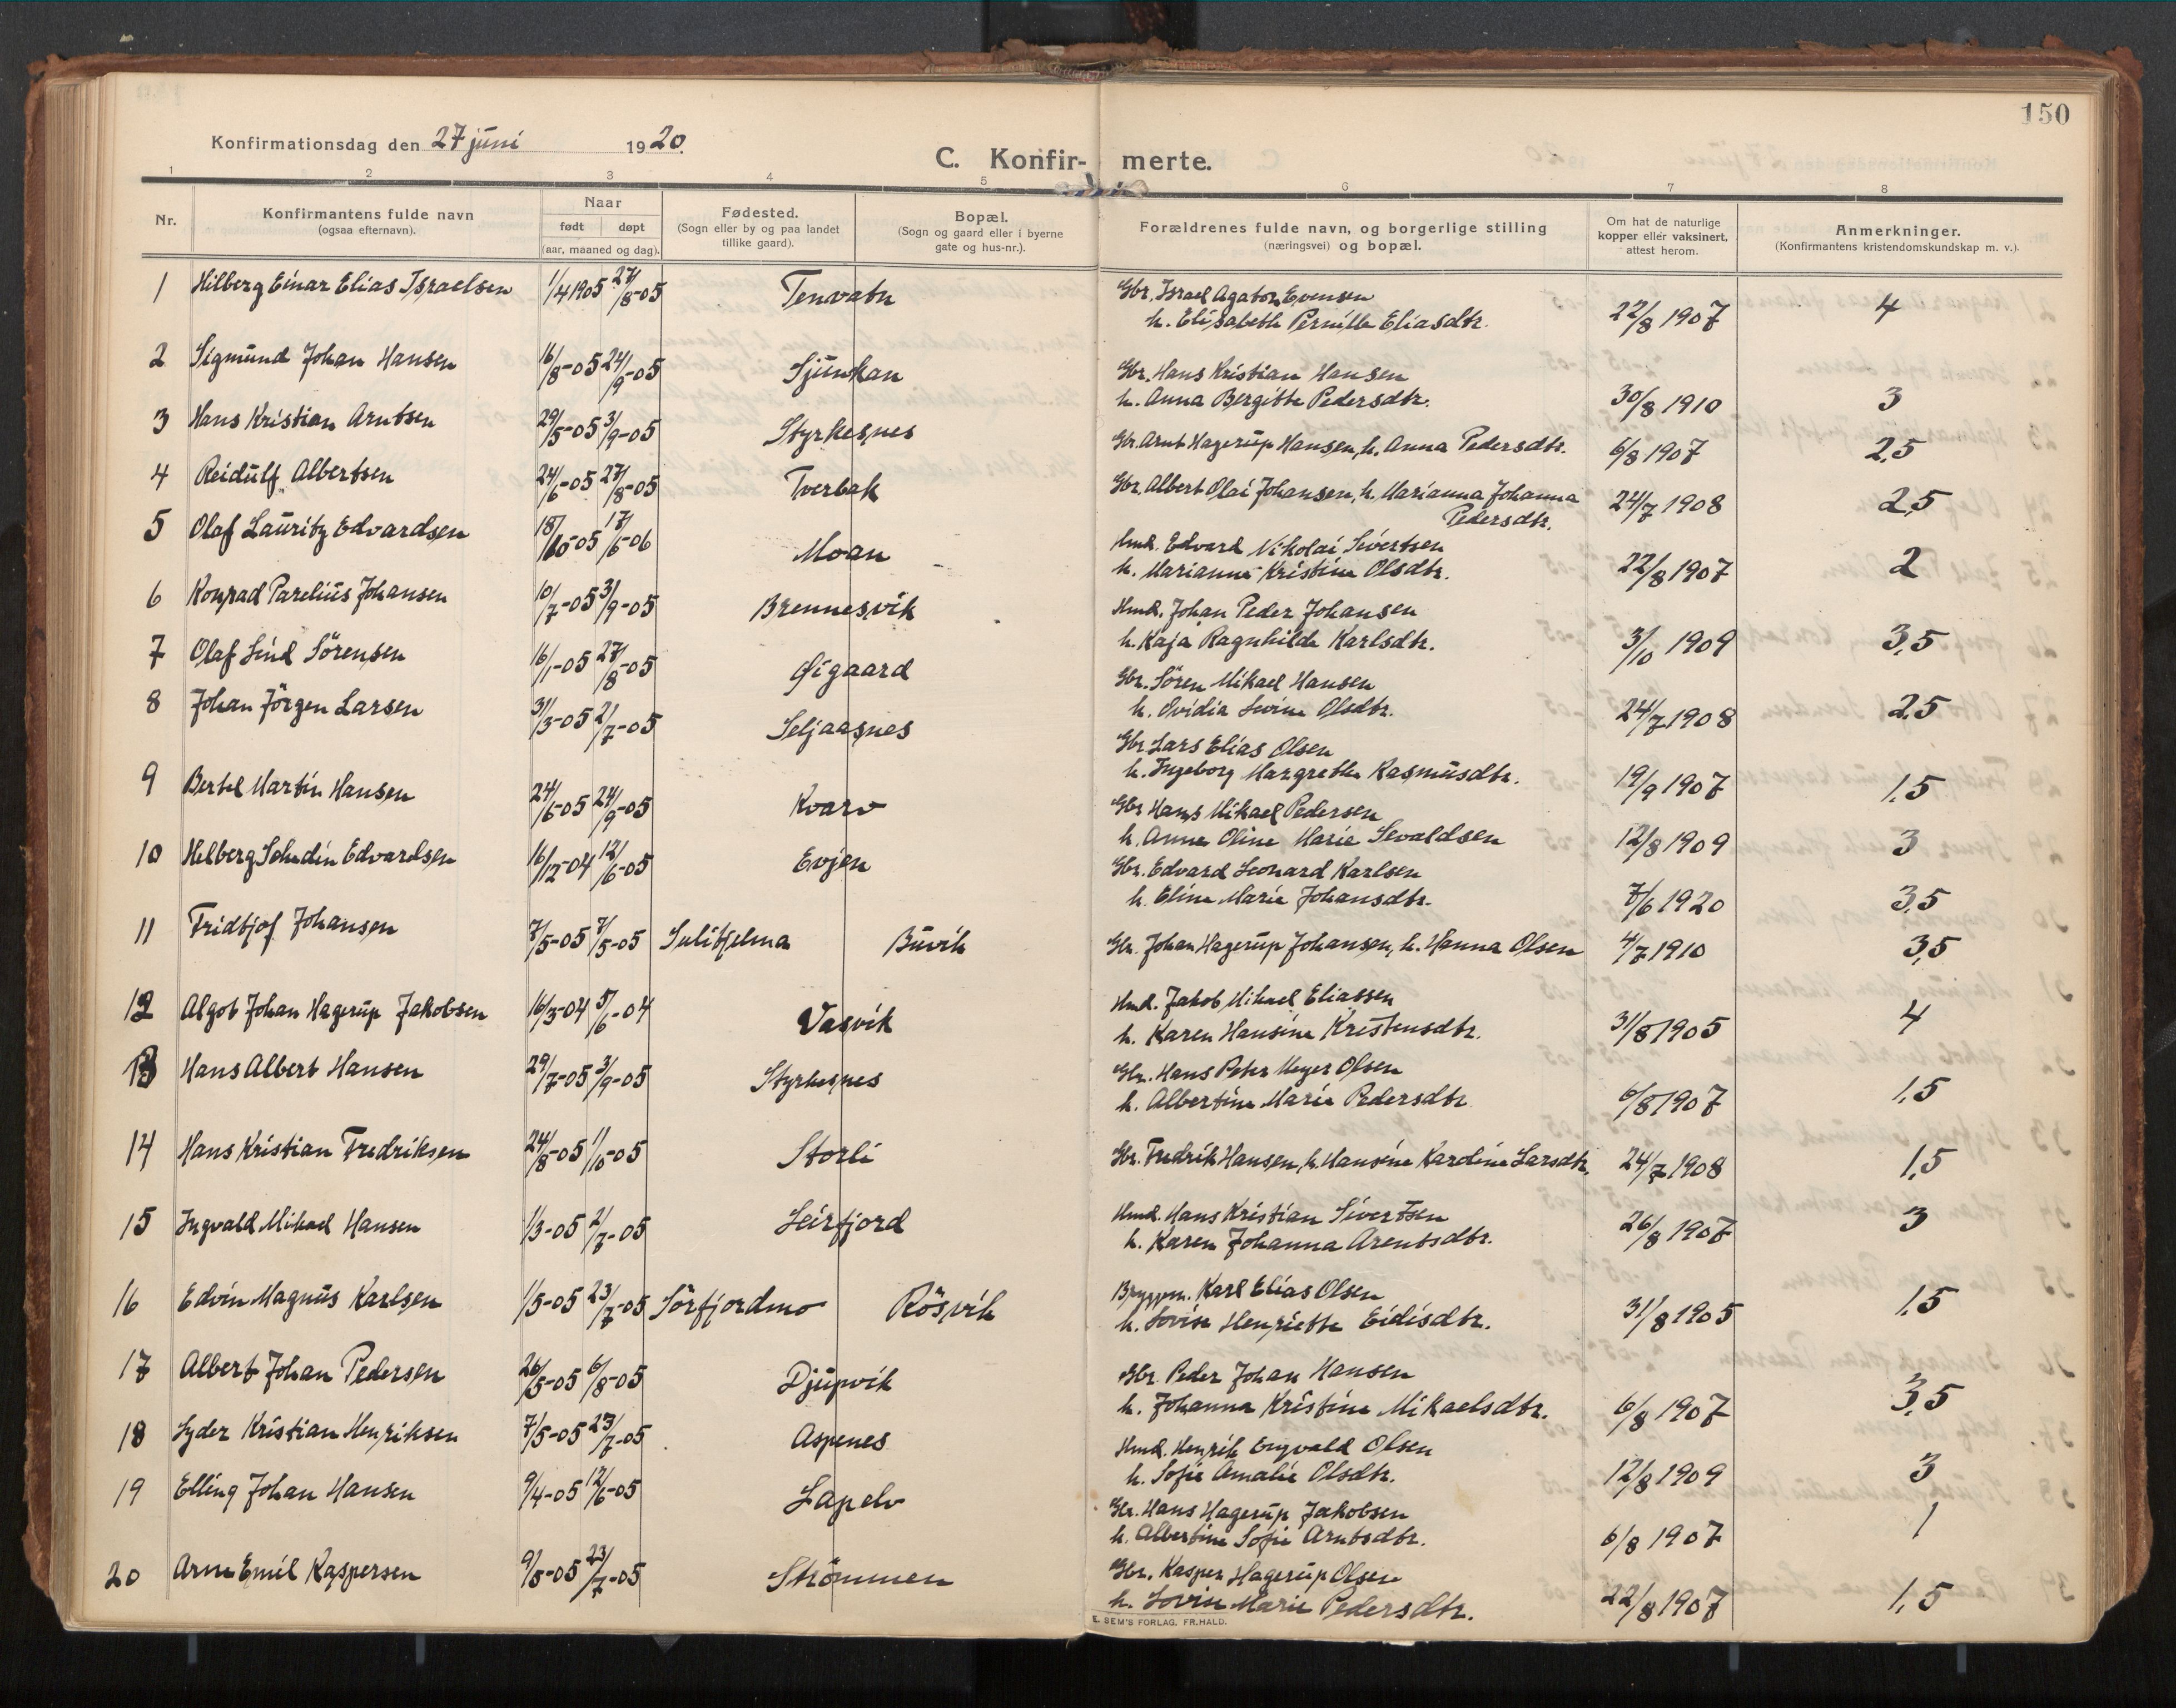 150
Konfirmationsdag den 27 juni 1920.
C. Konfir- merte.
1 2 3 4 5 6 7 8
Nr. Konfirmantens fulde navn (ogsaa efternavn). Naar født døpt (aar, maaned og dag). Fødested. (Sogn eller by og paa landet tillike gaard). Bopæl. (Sogn og gaard eller i byerne gate og hus-nr.). Forældrenes fulde navn, og borgerlige stilling (næringsvei) og bopæl. Om hat de naturlige kopper eller vaksinert, attest herom. Anmerkninger. (Konfirmantens kristendomskundskap m. v.).
1 Hilberg Einar Elias Israelsen 1/4 1905 27/8-05 Tenvatn Gbr. Israel Agaton Evensen
h. Elisabeth Pernille Eliasdtr. 22/8 1907 4
2 Sigmund Johan Hansen 16/8-05 24/9-05 Sjunkan Gbr. Hans Kristian Hansen
h. Anna Bergitte Pedersdtr. 30/8 1910 3
3 Hans Kristian Arntsen 29/5-05 3/9-05 Styrkesnes Gbr. Arnt Hagerup Hansen, h. Anna Pedersdtr. 6/8 1907 2,5
4 Reidulf Albertsen 24/6-05 27/8-05 Tverbak Gbr. Albert Olai Johansen, h. Marianna Johanna
Pedersdtr. 24/7 1908 2,5
5 Olaf Lauritz Edvardsen 18/10-05 17/6-06 Moan Hmd. Edvard Nikolai Sivertsen
h. Marianne Kristine Olsdtr. 22/8 1907 2
6 Konrad Parelius Johansen 10/7-05 3/9-05 Brennesvik Hmd. Johan Peder Johansen
h. Kaja Ragnhilda Karlsdtr. 3/10 1909 3,5
7 Olaf Lind Sörensen 16/1-05 27/8-05 Øigaard Gbr. Sören Mikael Hansen
h. Ovidia Lovine Olsdtr. 24/7 1908 2,5
8 Johan Jörgen Larsen 31/3-05 2/7-05 Seljaasnes Gbr. Lars Elias Olsen
h. Ingeborg Margrethe Rasmusdtr. 19/9 1907 1,5
9 Bertel Martin Hansen 24/6-05 24/9-05 Kvarv Gbr. Hans Mikael Pedersen
h. Anna Oline Marie Sevaldsen 12/8 1909 3
10 Helberg Schedin Edvardsen 16/12-04 12/6-05 Evjen Gbr. Edvard Leonard Karlsen
h. Eline Marie Johansdtr. 7/6 1920 3,5
11 Fridtjof Johansen 7/5-05 7/5-05 Sulitjelma Buvik Gbr. Johan Hagerup Johansen, h. Hanna Olsen 4/7 1910 3,5
12 Algot Johan Hagerup Jakobsen 16/3-04 5/6-04 Vasvik Hmd. Jakob Mikael Eliassen
h. Karen Hansine Kristensdtr. 31/8 1905 4
13 Hans Albert Hansen 29/7-05 3/9-05 Styrkesnes Gbr. Hans Peter Meyer Olsen
h. Albertine Marie Pedersdtr 6/8 1907 1,5
14 Hans Kristian Fredriksen 24/8-05 1/10-05 Storli Gbr. Fredrik Hansen, h. Hansine Karoline Larsdtr. 24/7 1908 1,5
15 Ingvald Mikael Hansen 1/3-05 2/7-05 Leirfjord Hmd. Hans Kristian Sivertsen
h. Karen Johanna Arentsdtr. 26/8 1907 3
16 Edvin Magnus Karlsen 1/5-05 23/7-05 Sörfjordmo Rösvik Bryggm. Karl Elias Olsen
h. Lovise Henriette Eidisdtr. 31/8 1905 1,5
17 Albert Johan Pedersen 26/5-05 6/8-05 Djupvik Gbr. Peder Johan Hansen
h. Johanna Kristine Mikaelsdtr. 6/8 1907 3,5
18 Lyder Kristian Henriksen 7/5-05 23/7-05 Aspenes Hmd. Henrik Engvald Olsen
h. Sofie Amalie Olsdtr. 12/8 1909 3
19 Elling Johan Hansen 9/4-05 12/6-05 Lapelv Gbr. Hans Hagerup Jakobsen
h. Albertine Sofie Arntsdtr. 6/8 1907 1
20 Arne Emil Kaspersen 9/5-05 23/7-05 Strömmen Gbr. Kasper Hagerup Olsen
h. Lovise Marie Pedersdtr. 22/8 1907 1,5
E. SEM'S FORLAG, FR.HALD.